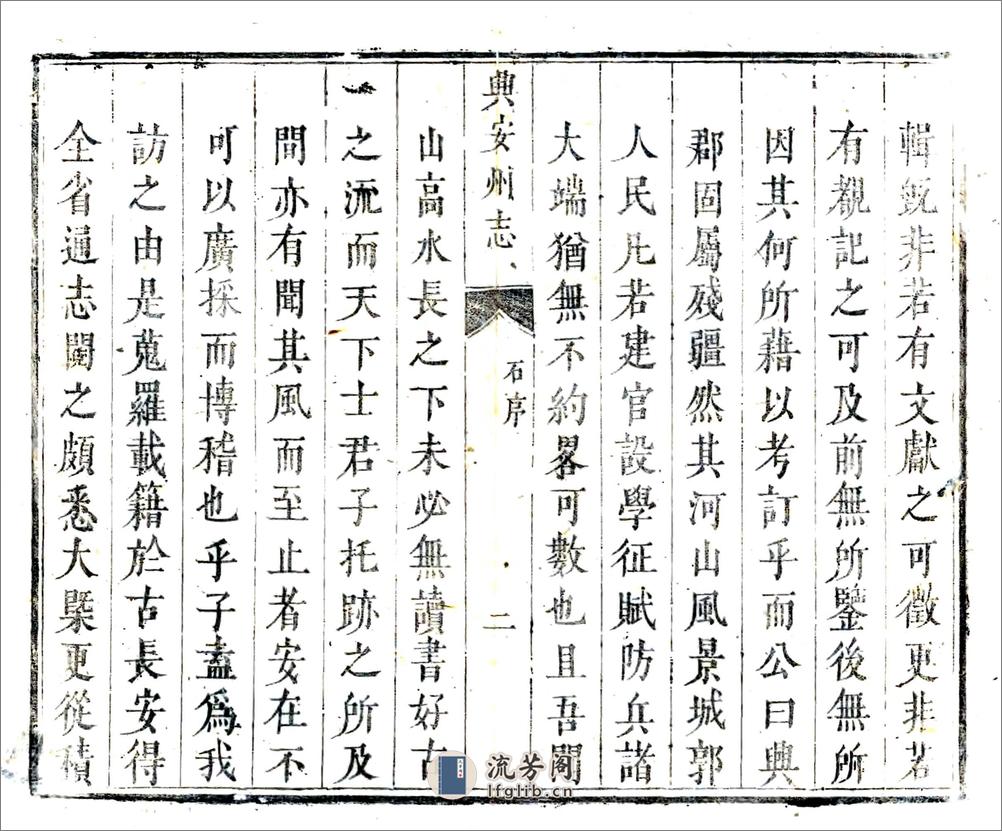 輯旣非若有文獻之可徵更非若
有覩記之可及前無所鑒後無所
因其何所藉以考訂乎而公曰興
郡固屬殘疆然其河山風景城郭
人民凡若建官設學征賦防兵諸
大端猶無不約畧可數也且吾聞
興安州志
石序
二
山高水長之下未必無讀書好古
之流而天下士君子托跡之所及
間亦有聞其風而至止者安在不
可以廣採而博稽也乎子盍爲我
訪之由是蒐羅載籍於古長安得
全省通志閱之頗悉大槩更從積
流芳阁
lfglib.cn